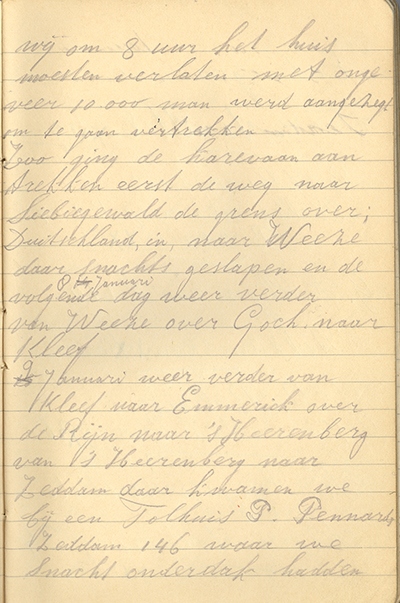 wij om 8 uur het huis
moesten verlaten met onge-
veer 10.000 man werd aangezegt
om te gaan vertrekken
Zoo ging de karevaan aan
trekken eerst de weg naar
Siebiegewald de grens over;
Duitschland, in, naar Weeze
daar snachts geslapen en de
8 Januari
volgende dag weer verder
van Weeze over Goch naar
Kleef
9 Januari weer verder van
Kleef naar Emmerick over
de Rijn naar 's Heerenberg
van 's Heerenberg naar
Zeddam daar kwamen we
bij een Tolhuis P. Pennarts
Zeddam 146 waar we
Snacht onderdak hadden